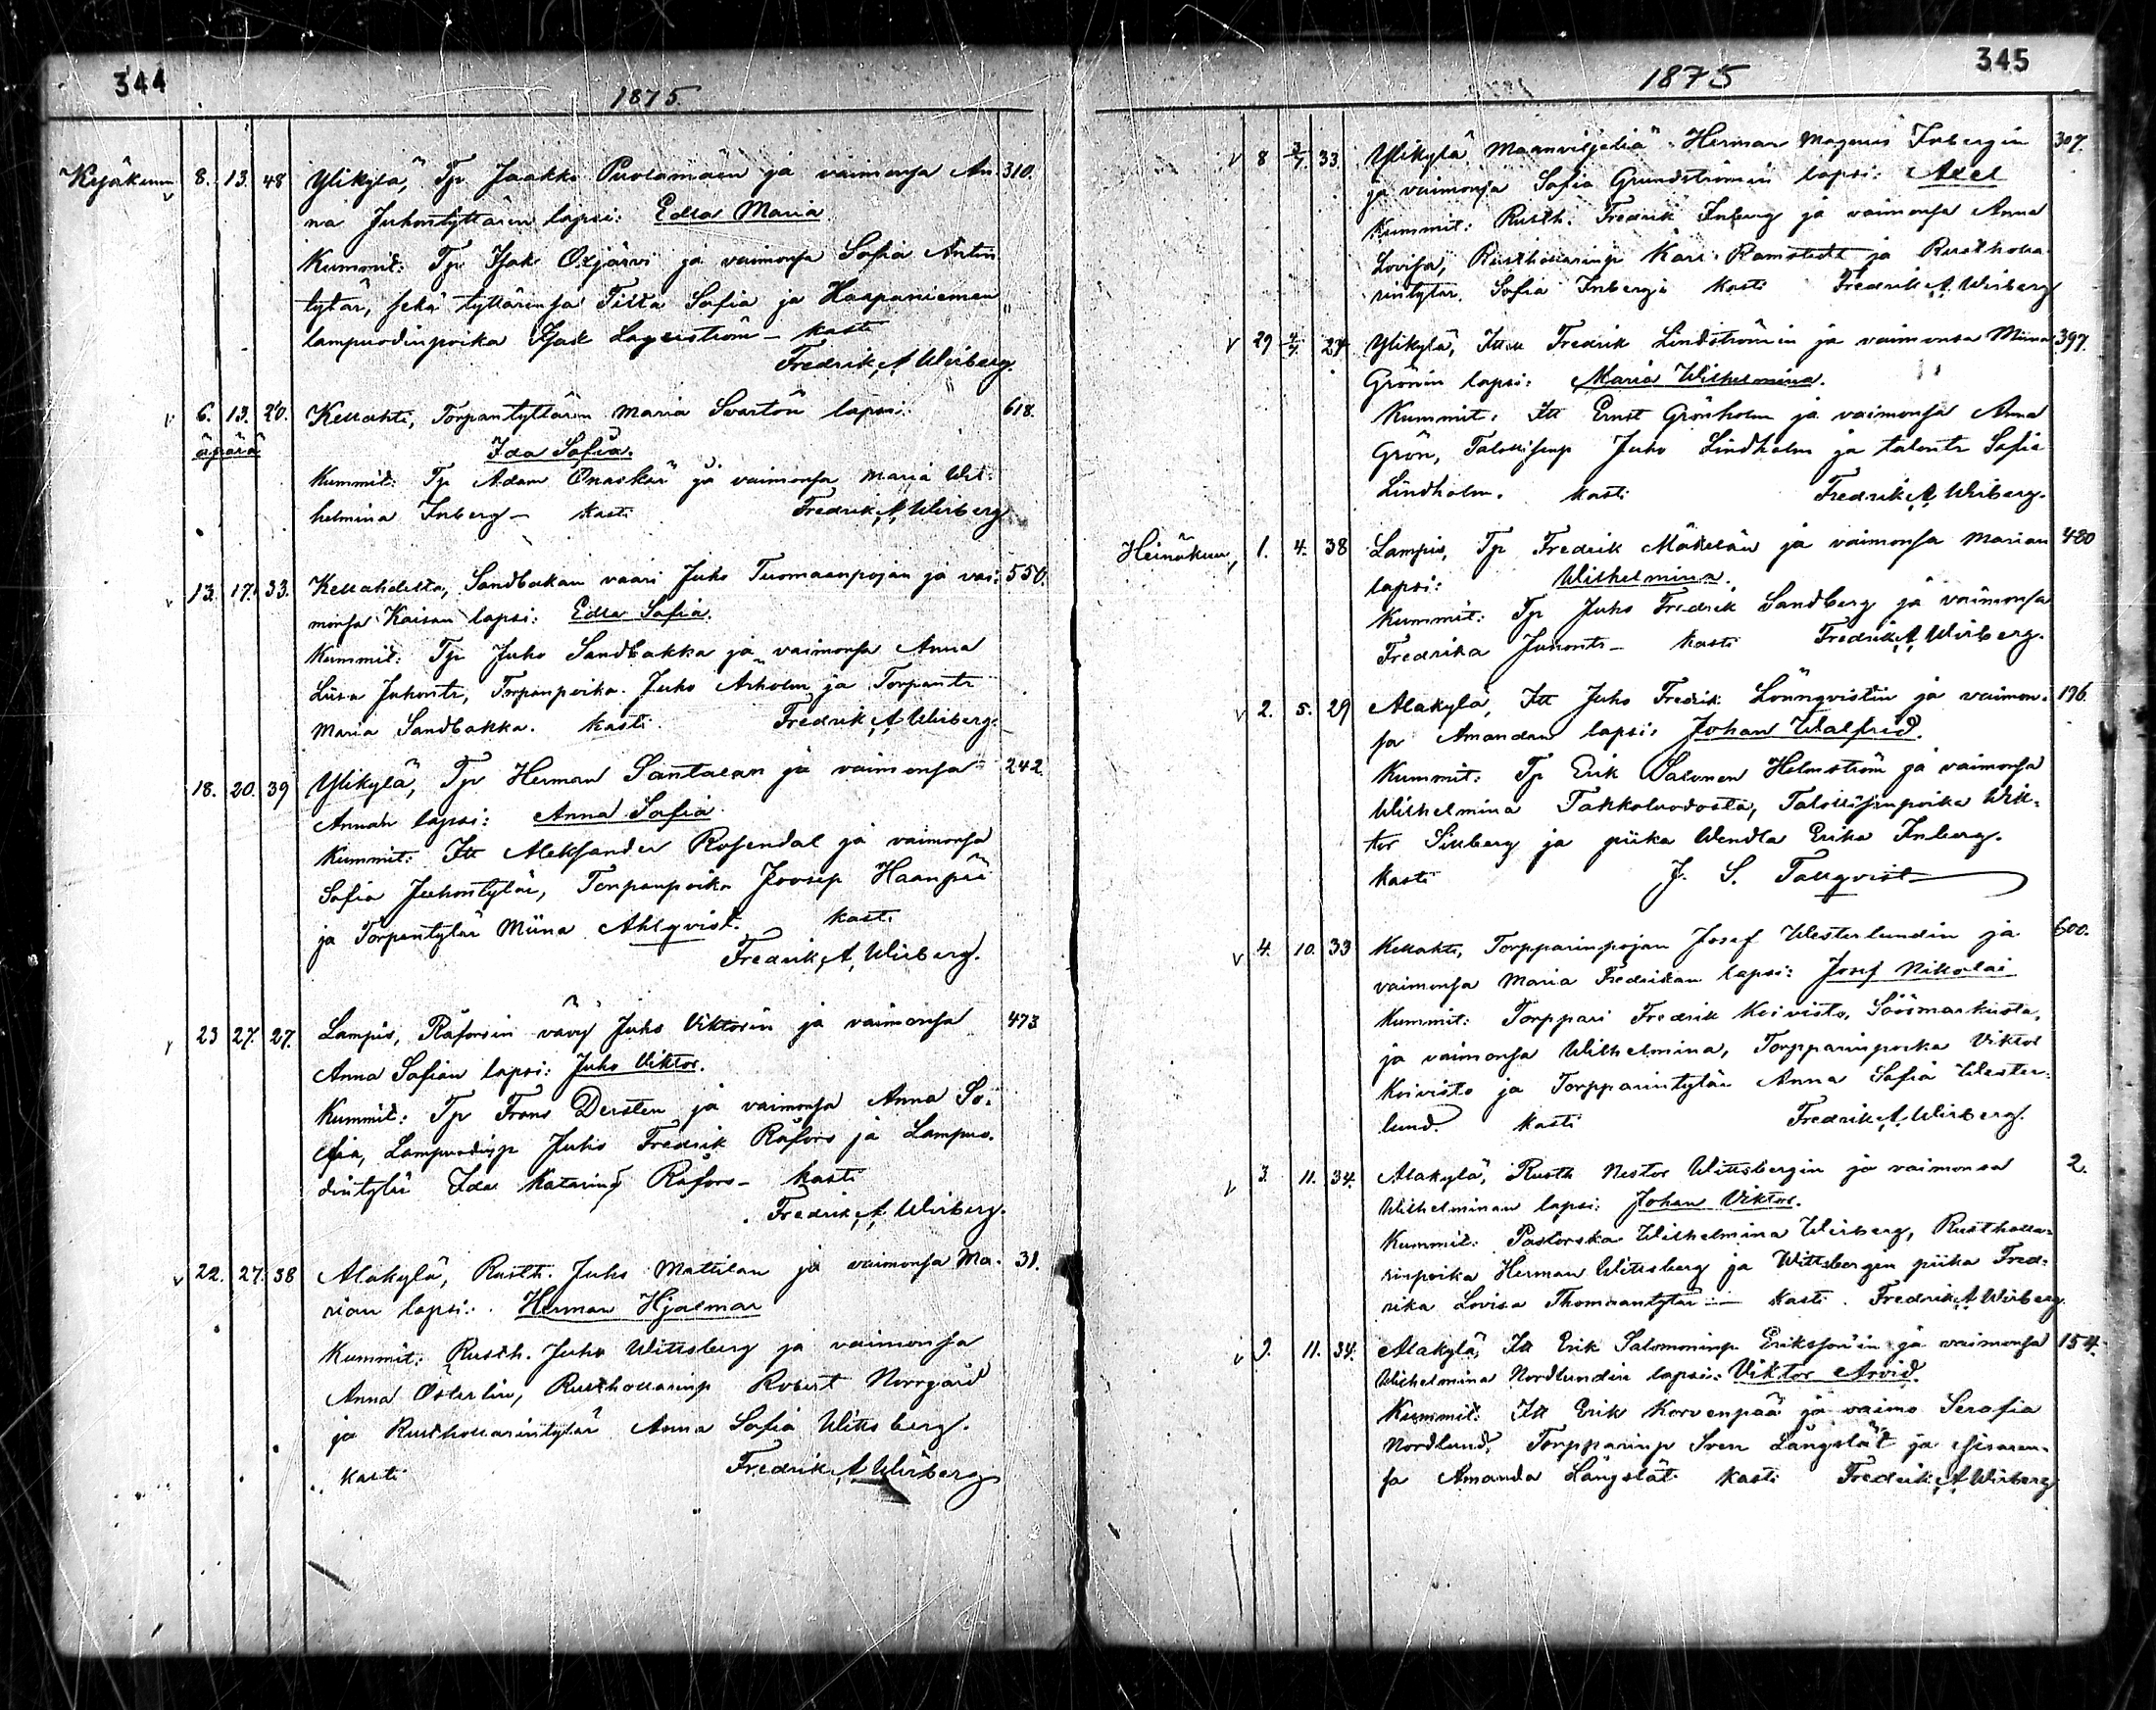 344
1875.
Kesäkuun 8. 13. 48 Ylikylä, Tp Jaakko Puolamäen ja vaimonsa An- 310.
na Juhontyttären lapsi: Edla Maria
Kummit: Tp Isak Oxjärvi ja vaimonsa Sofia Antin
tytär, sekä tyttärensä Tilda Sofia ja Haapaniemen
lampuodinpoika Isak Lagerström - kasti
Fredrik A Wirberg.
6. 13. 20. Kellahti, Torpantyttären Maria Svartön lapsi: 618.
äpärä Ida Sofia.
Kummit: Tp Adam Enaskär ja vaimonsa Maria Wil-
helmina Inberg - kasti Fredrik A Wirberg
13. 17. 33. Kellahdelta, Sandbakan vaari Juho Tuomaanpojan ja vai- 550.
monsa Kaisan lapsi: Edla Sofia.
Kummit: Tp Juho Sandbakka ja vaimonsa Anna
Liisa Juhontr, Torpanpoika Juho Arholm ja Torpantr
Maria Sandbakka. kasti Fredrik A Wirberg.
18. 20. 39 Ylikylä, Tp Herman Santalan ja vaimonsa 242.
Annan lapsi: Anna Sofia
Kummit: Itt Aleksander Rosendal ja vaimonsa
Sofia Juhontytär, Torpanpoika Joosep Haanpää
ja Torpantytär Miina Ahlqvist. kasti
Fredrik A Wirberg.
23 27. 27. Lampis, Råforsin vävy Juho Viktorin ja vaimonsa 473
Anna Sofian lapsi: Juho Viktor.
Kummit: Tp Frans Dersten ja vaimonsa Anna So-
fia, Lampuodinp Juho Fredrik Råfors ja Lampuo-
dintytär Ida Katarina Råfors - kasti
Fredrik A Wirberg.
22. 27. 38 Alakylä, Rusth. Juho Mattilan ja vaimonsa Ma- 31.
rian lapsi: Herman Hjalmar
Kummit: Rusth. Juho Wittsberg ja vaimonsa
Anna Österlin, Rusthollarinp Robert Norrgård
ja Rusthollarintytär Anna Sofia Wittsberg.
kasti Fredrik A Wirberg
345
1875
8 2/7. 33. Ylikylä Maanviljeliä Herman Magnus Inbergin 307.
ja vaimonsa Sofia Grundströmin lapsi: Axel
Kummit: Rusth. Fredrik Inberg ja vaimonsa Anna
Lovisa, Rusthollarinp Karl Ramstedt ja Rustholla-
rintytär Sofia Inberg kasti Fredrik A. Wirberg
29 4/7. 24 Ylikylä, Itt Fredrik Lindströmin ja vaimonsa Miina 397.
Grönin lapsi: Maria Wilhelmina.
Kummit: Itt Ernst Grönholm ja vaimonsa Anna
Grön, Talollisenp Juho Lindholm ja talontr Sofia
Lindholm. kasti Fredrik A Wirberg.
Heinäkuu 1. 4. 38 Lampis, Tp Fredrik Mäkelän ja vaimonsa Marian 480
lapsi: Wilhelmina.
Kummit: Tp Juho Fredrik Sandberg ja vaimonsa
Fredrika Juhontr - kasti Fredrik A Wirberg.
2. 5. 29 Alakylä, Itt Juho Fredrik Lönnqvistin ja vaimon- 196.
sa Amandan lapsi: Johan Walfrid.
Kummit: Tp Erik Salomon Holmström ja vaimonsa
Wilhelmina Takkoluodosta, Talollisenpoika Wik-
tor Siuberg ja piika Wendla Erika Inberg.
kasti J. S. Tallqvist
4. 10. 33 Kellahti, Torpparinpojan Josef Westerlundin ja 600.
vaimonsa Maria Fredrikan lapsi: Josef Nikolai
Kummit: Torppari Fredrik Koivisto, Söörmarkusta,
ja vaimonsa Wilhelmina, Torpparinpoika Viktor
Koivisto ja Torpparintytär Anna Sofia Wester-
lund. kasti Fredrik A. Wirberg.
3. 11. 34. Alakylä, Rusth Nestor Wittsbergin ja vaimonsa 2.
Wilhelminan lapsi: Johan Viktor.
Kummit: Pastorska Wilhelmina Wirberg, Rustholla-
rinpoika Herman Wittsberg ja Wittsbergin piika Fred-
rika Lovisa Thomaantytär - kasti. Fredrik A Wirberg.
9. 11. 34. Alakylä, Itt Erik Salomoninp Erikssonin ja vaimonsa 154.
Wilhelmina Nordlundin lapsi: Viktor Arvid.
Kummit: Itt Erik Korvenpää ja vaimo Serafia
Nordlund, Torpparinp Sven Långslät ja sisaren-
sa Amanda Långslät kasti Fredrik A Wirberg